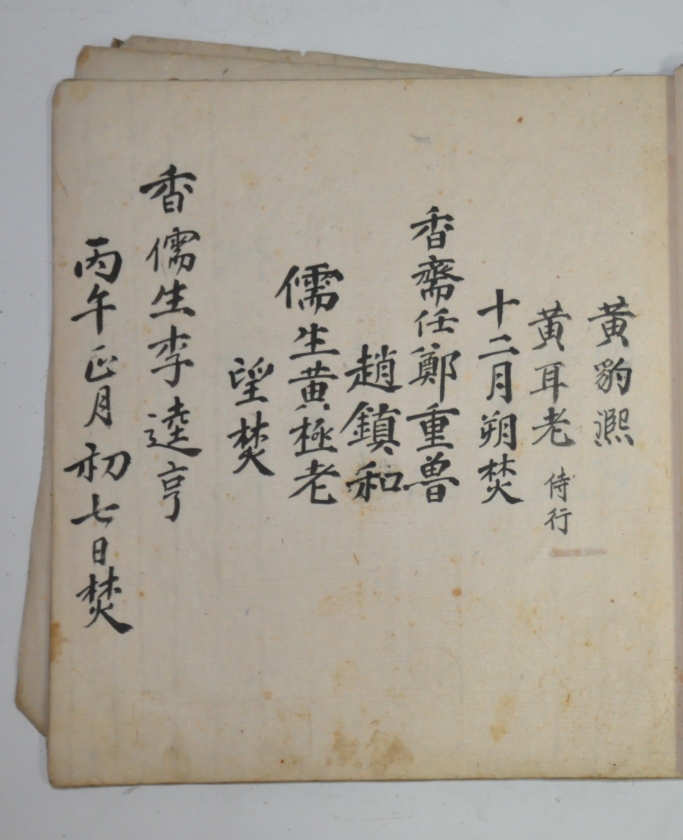 黃豹濕
黃耳老 侍行
十二月朔焚
香齋任鄭重魯
趙鎮和
儒生黃極老
望焚
香儒生李逵亨
丙午正月初七日焚